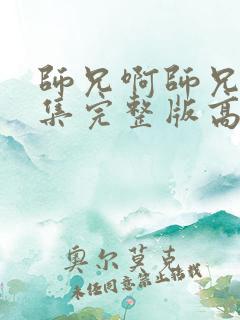 師兄啊師兄
集完整版高
奥尔莫克
未经同意禁止转载